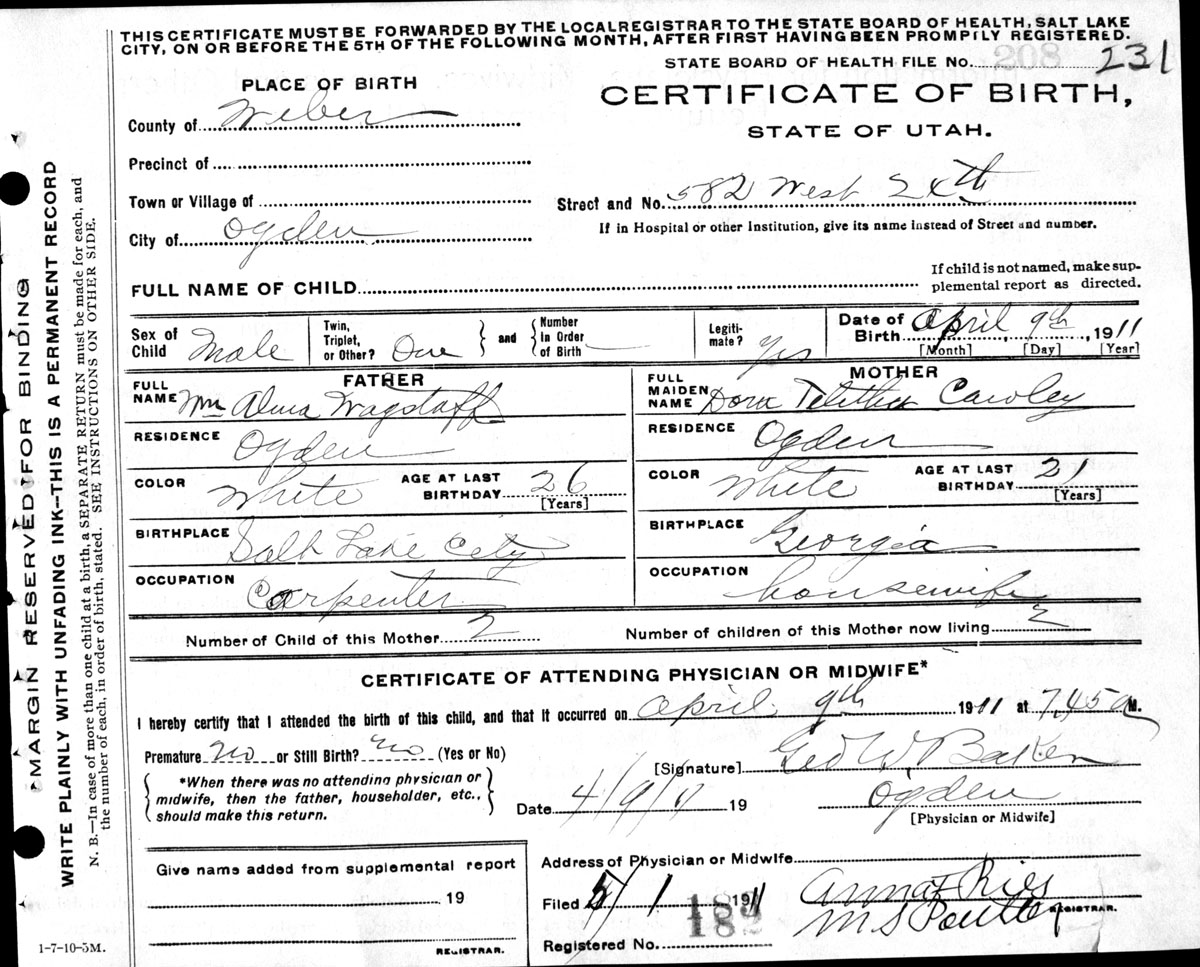 THIS CERTIFICATE MUST BE FORWARDED BY THE LOCAL REGISTRAR TO THE STATE BOARD OF HEALTH, SALT LAKE
CITY, ON OR BEFORE THE 5TH OF THE FOLLOWING MONTH, AFTER FIRST HAVING BEEN PROMPILY REGISTERED.
STATE BOARD OF HEALTH FILE No. 208 231
PLACE OF BIRTH
CERTIFICATE OF BIRTH,
STATE OF UTAH.
County of Weber
Precinct of
Town or Village of
Street and No. 582 West
City of Ogden
If in Hospital or other Institution, give its name instead of Street and number.
FULL NAME OF CHILD
If child is not named, make sup-
plemental report as directed.
Sex of Child Male
Twin, Triplet, or Other? One
and
Number In Order of Birth
Legiti-mate? Yes
Date of Birth April 9th, 1911
[Month] [Day] [Year]
FATHER
FULL NAME Wm Alma Wagstaff
RESIDENCE Ogden
COLOR White
AGE AT LAST BIRTHDAY 26
[Years]
BIRTHPLACE Salt Lake City
OCCUPATION Carpenter
MOTHER
FULL MAIDEN NAME Dora Cawley
RESIDENCE Ogden
COLOR White
AGE AT LAST BIRTHDAY 21
[Years]
BIRTHPLACE Georgia
OCCUPATION housewife
Number of Child of this Mother 2
Number of children of this Mother now living 2
CERTIFICATE OF ATTENDING PHYSICIAN OR MIDWIFE*
I hereby certify that I attended the birth of this child, and that it occurred on April 9th 1911 at 7.45 a M.
Premature No or Still Birth? No (Yes or No)
*When there was no attending physician or
midwife, then the father, householder, etc.,
should make this return.
[Signature] Geo W. Baker
Date 4/9/11 19
Ogden
[Physician or Midwife]
Give name added from supplemental report
19
REGISTRAR.
Address of Physician or Midwife
Filed 5/1 1911
Anna F Ries
M S Poulter
REGISTRAR.
Registered No. 182
1-7-10-5M.
MARGIN RESERVED FOR BINDING
WRITE PLAINLY WITH UNFADING INK--THIS IS A PERMANENT RECORD
N. B.—In case of more than one child at a birth, a SEPARATE RETURN must be made for each, and
the number of each, in order of birth, stated. SEE INSTRUCTIONS ON OTHER SIDE.